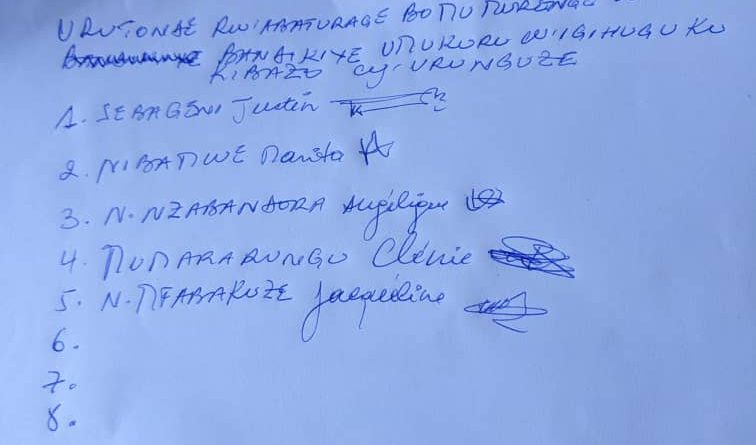 URUTONDE RW'ABATURAGE BO MU MURENGE
BANDIKIYE UMUKURU W'IGIHUGU KU
KIBAZO CY'URUNGUZE
1. SEBAGENI Justin
2. NIBATWE Marita
3. N. NZABANDORA Angélique
4. MUMARARUNGU Clénie
5. N. MFABAKUZE Jacqueline
6.
7.
8.